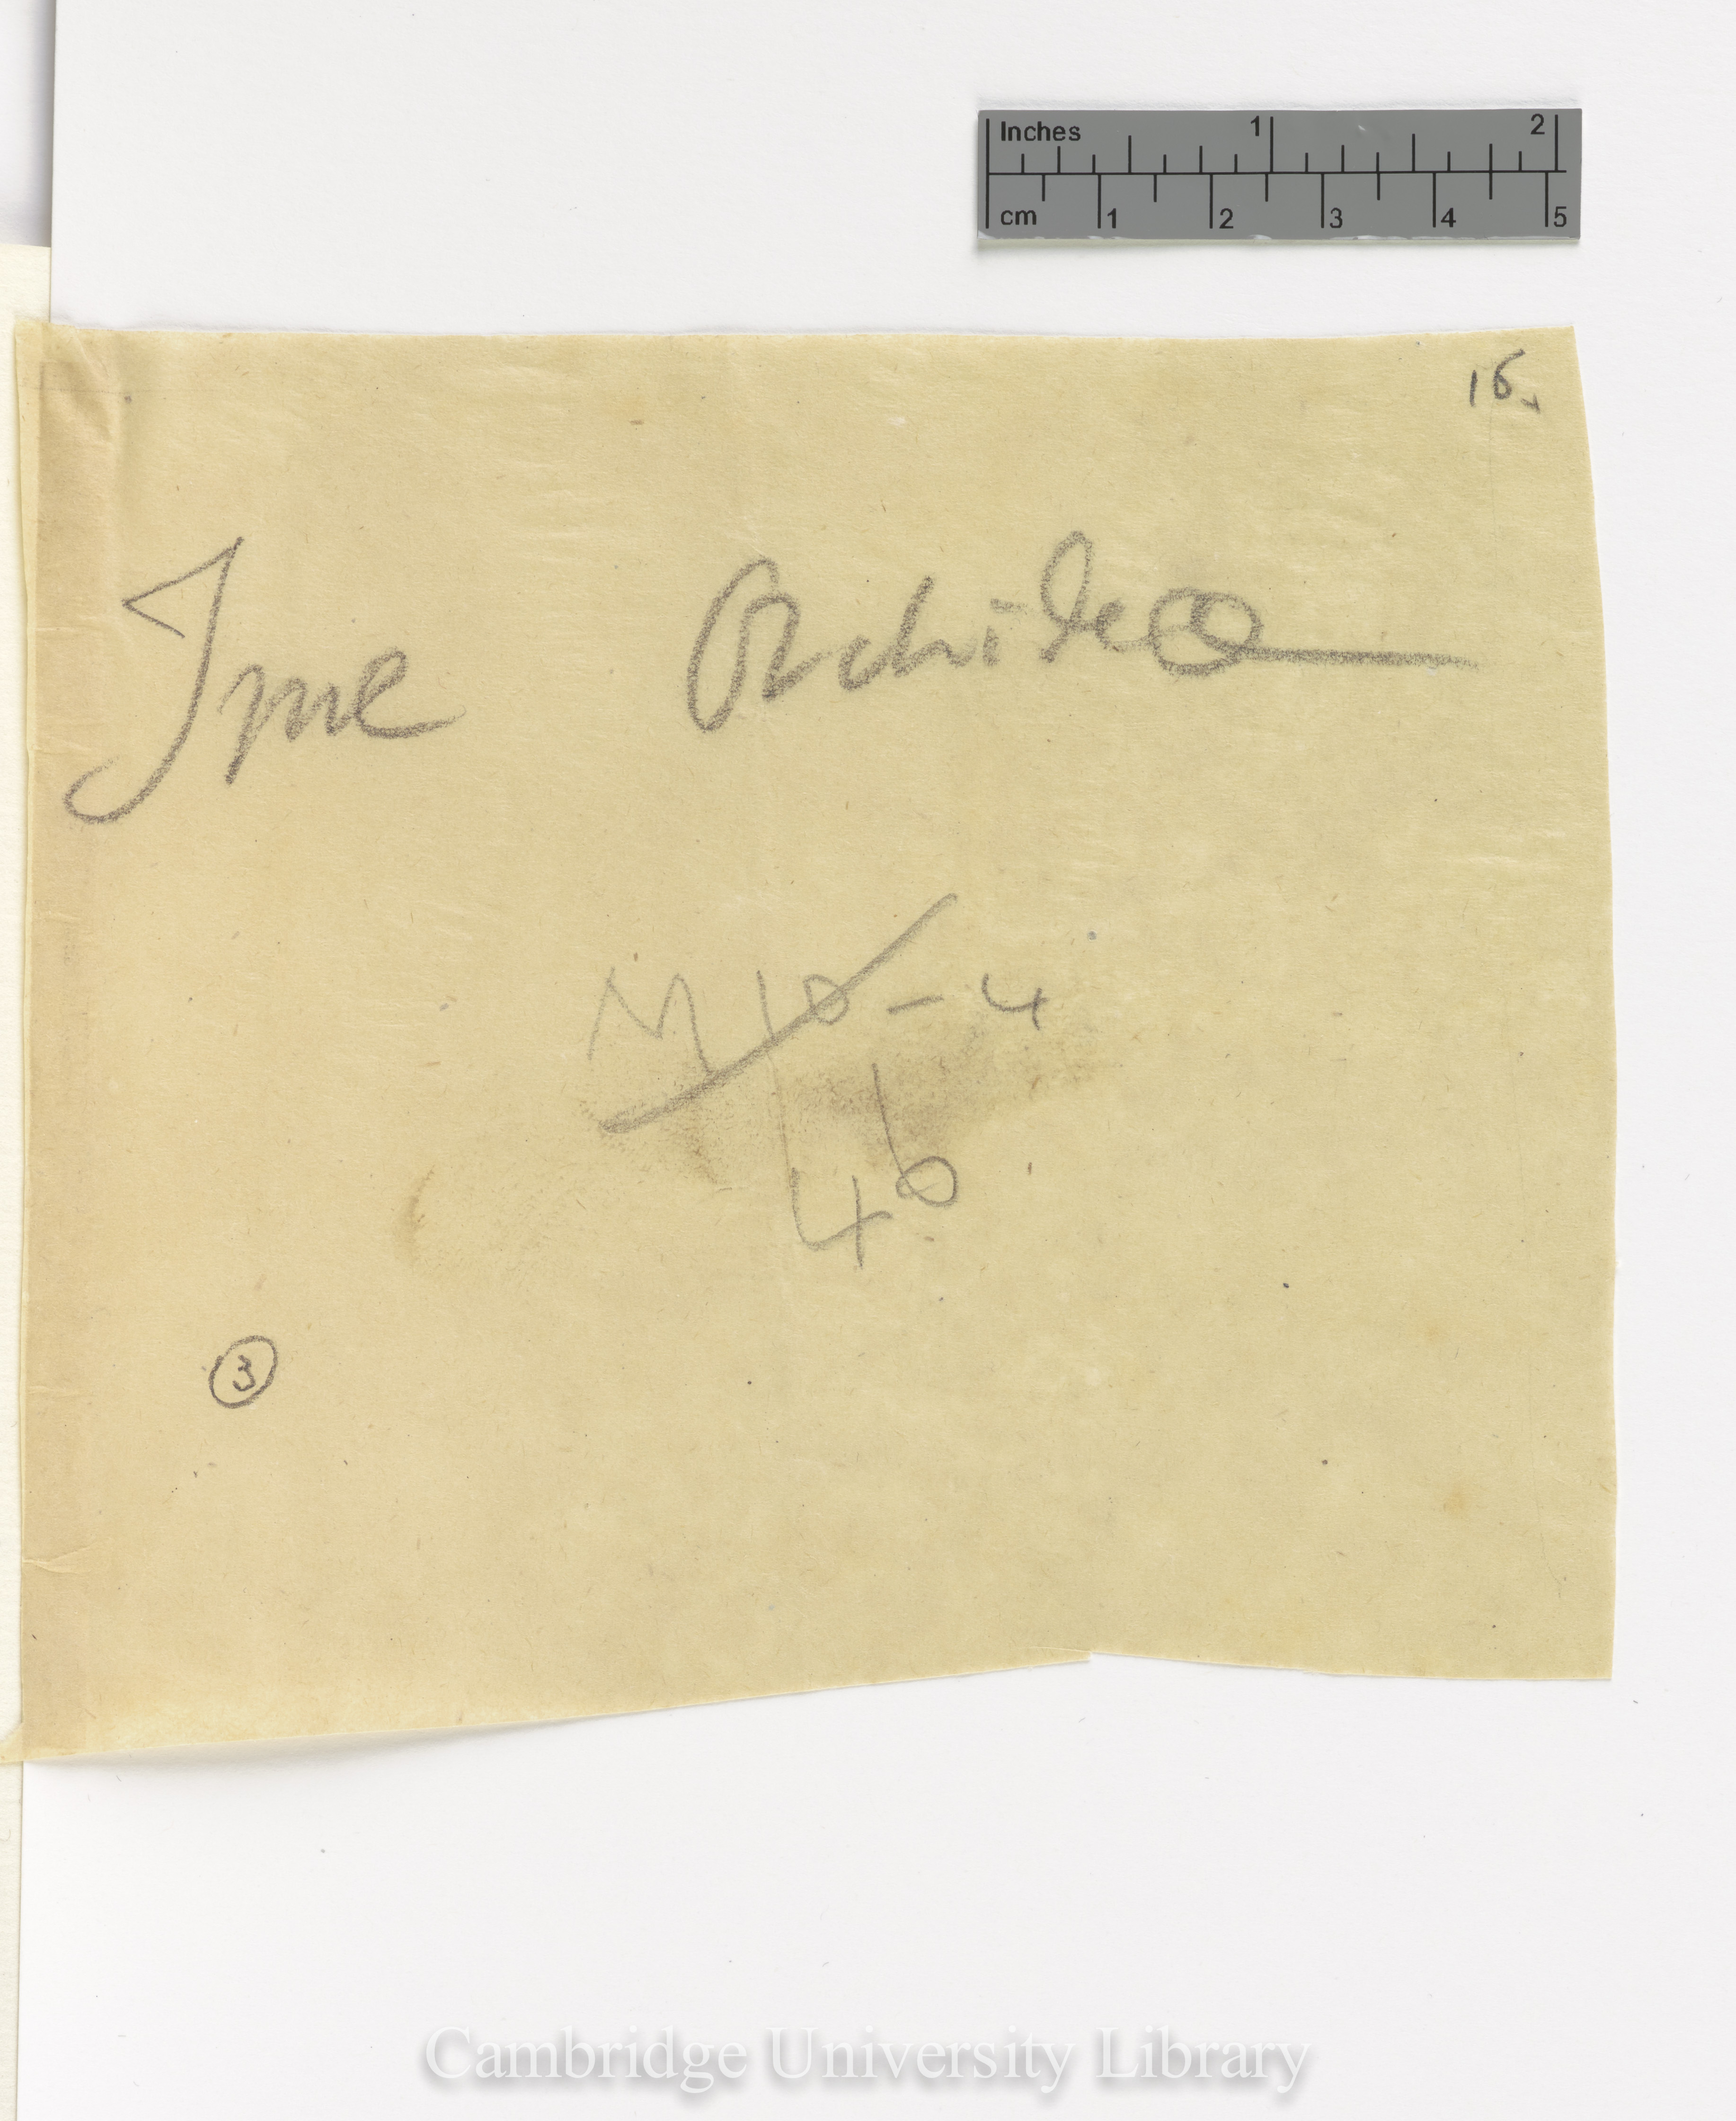 Inches 1 2
cm 1 2 3 4 5
16
Type Orchideae
M 10 - 4
46
3
Cambridge University Library